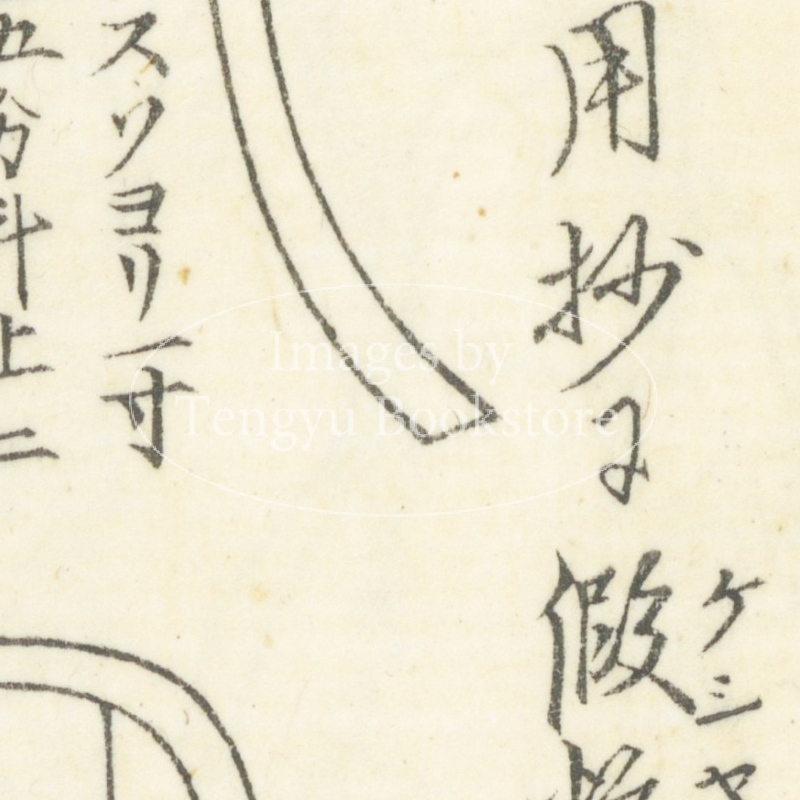 用抄ニ假
ケシヤ
スソヨリ一寸
五分斗上ニ
Images by
Tengyu Bookstore